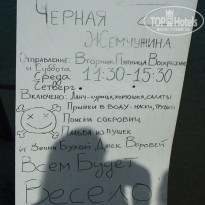 TopHotels
Черная
Жемчужина
Отправление Вторник Пятница Воскресение
и Суббота
Среда 11:30-15:30
Четверг
Включено: Ланч-курица, картошка, салаты
Прыжки в воду-маски, трубки
Поиски сокровищ
Пальба из пушек
и Вечно Бухой Джек Воробей
Всем Будет
Весело